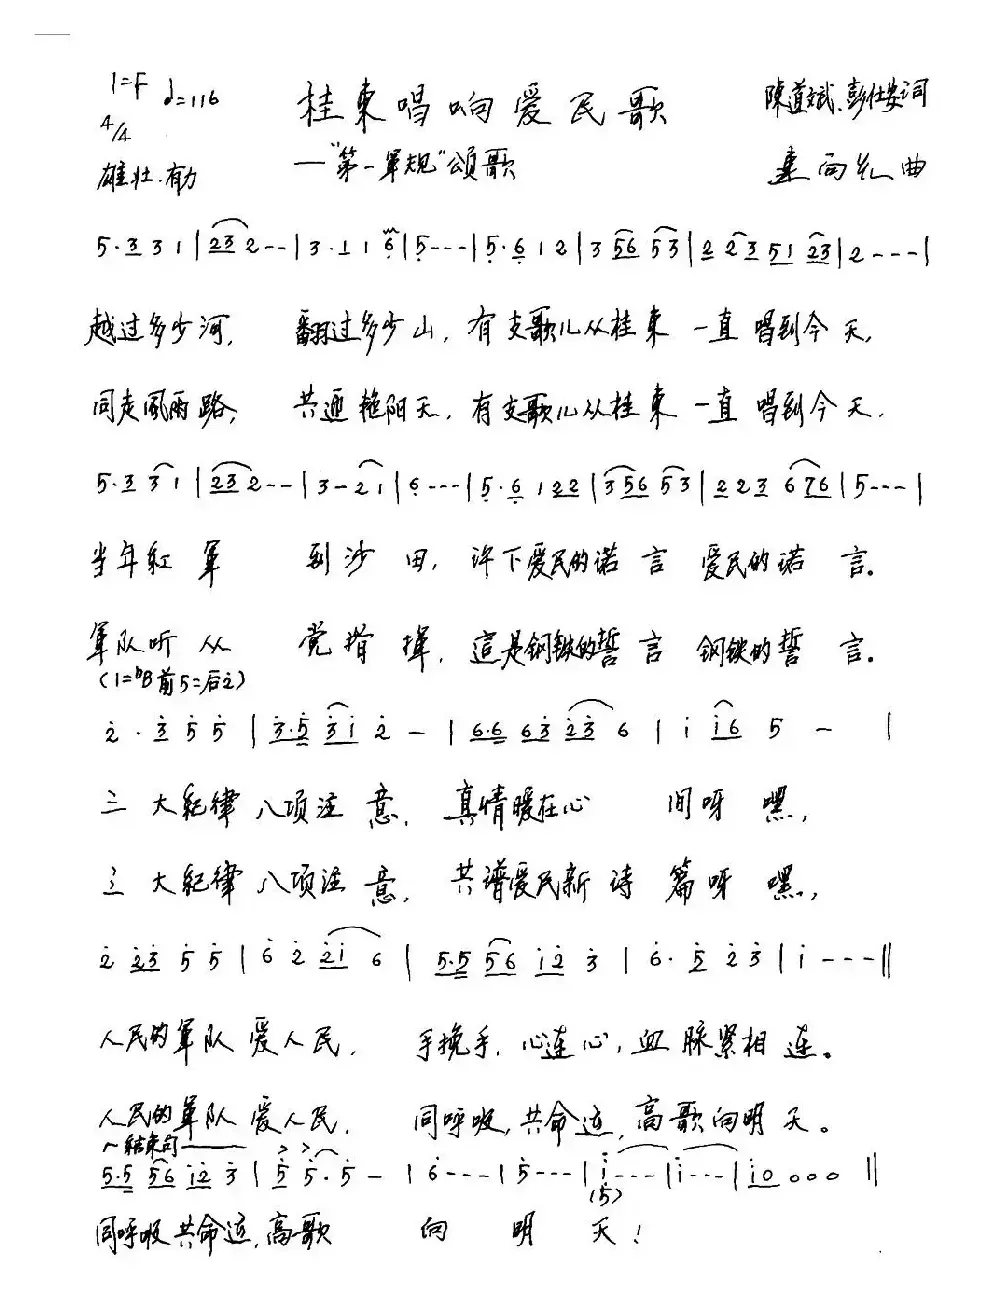 1=F ♩=116
4/4
雄壮.有力
桂東唱响爱民歌
—"第一軍规"頌歌
陳道斌、彭仕安词
曲
5·3 3 1 | 23 2 - - | 3·1 1 6 | 5 - - - | 5·6 1 2 | 3 56 53 | 2 23 51 23 | 2 - - - |
越过多少河, 翻过多少山, 有支歌儿从桂東 一直唱到今天,
同走風雨路, 共迎艳阳天, 有支歌儿从桂東 一直唱到今天.
5·3 3 1 | 23 2 - - | 3 - 2 1 | 6 - - - | 5·6 1 22 | 3 56 53 | 2 2 3 6 76 | 5 - - - |
当年紅軍 到沙田, 许下爱民的诺言 爱民的诺言。
軍队听从 党指揮, 這是钢铁的誓言 钢铁的誓言。
(1=♭B前5=后2̇)
2̇·3̇ 5̇ 5̇ | 3̇·5̇ 3̇1̇ 2̇ - | 6·6 63̇ 2̇3̇ 6 | 1̇ 1̇6 5 - |
三大紀律八项注意, 真情暖在心 间呀嘿,
三大紀律八项注意, 共谱爱民新诗篇呀嘿,
2̇ 2̇3̇ 5̇ 5̇ | 6̇ 2̇ 2̇1̇ 6 | 5·5 56 1̇2̇ 3̇ | 6̇·5̇ 2̇3̇ | 1̇ - - - ‖
人民的軍队爱人民, 手挽手,心连心,血脉紧相连。
人民的軍队爱人民, 同呼吸,共命运,高歌向明天。
结束句
5·5 56 1̇2̇ 3̇ | 5̇ 5̇·5̇ - | 6̇ - - - | 5̇ - - - | 1̇ - - - | 1̇ - - - | 1̇0 0 0 0 ‖
(5̇)
同呼吸共命运,高歌 向 明 天!